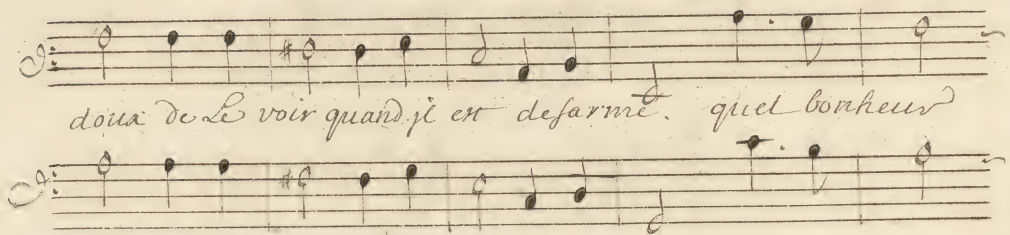 doux de Le voir quand jl est desarmé. quel bonheur